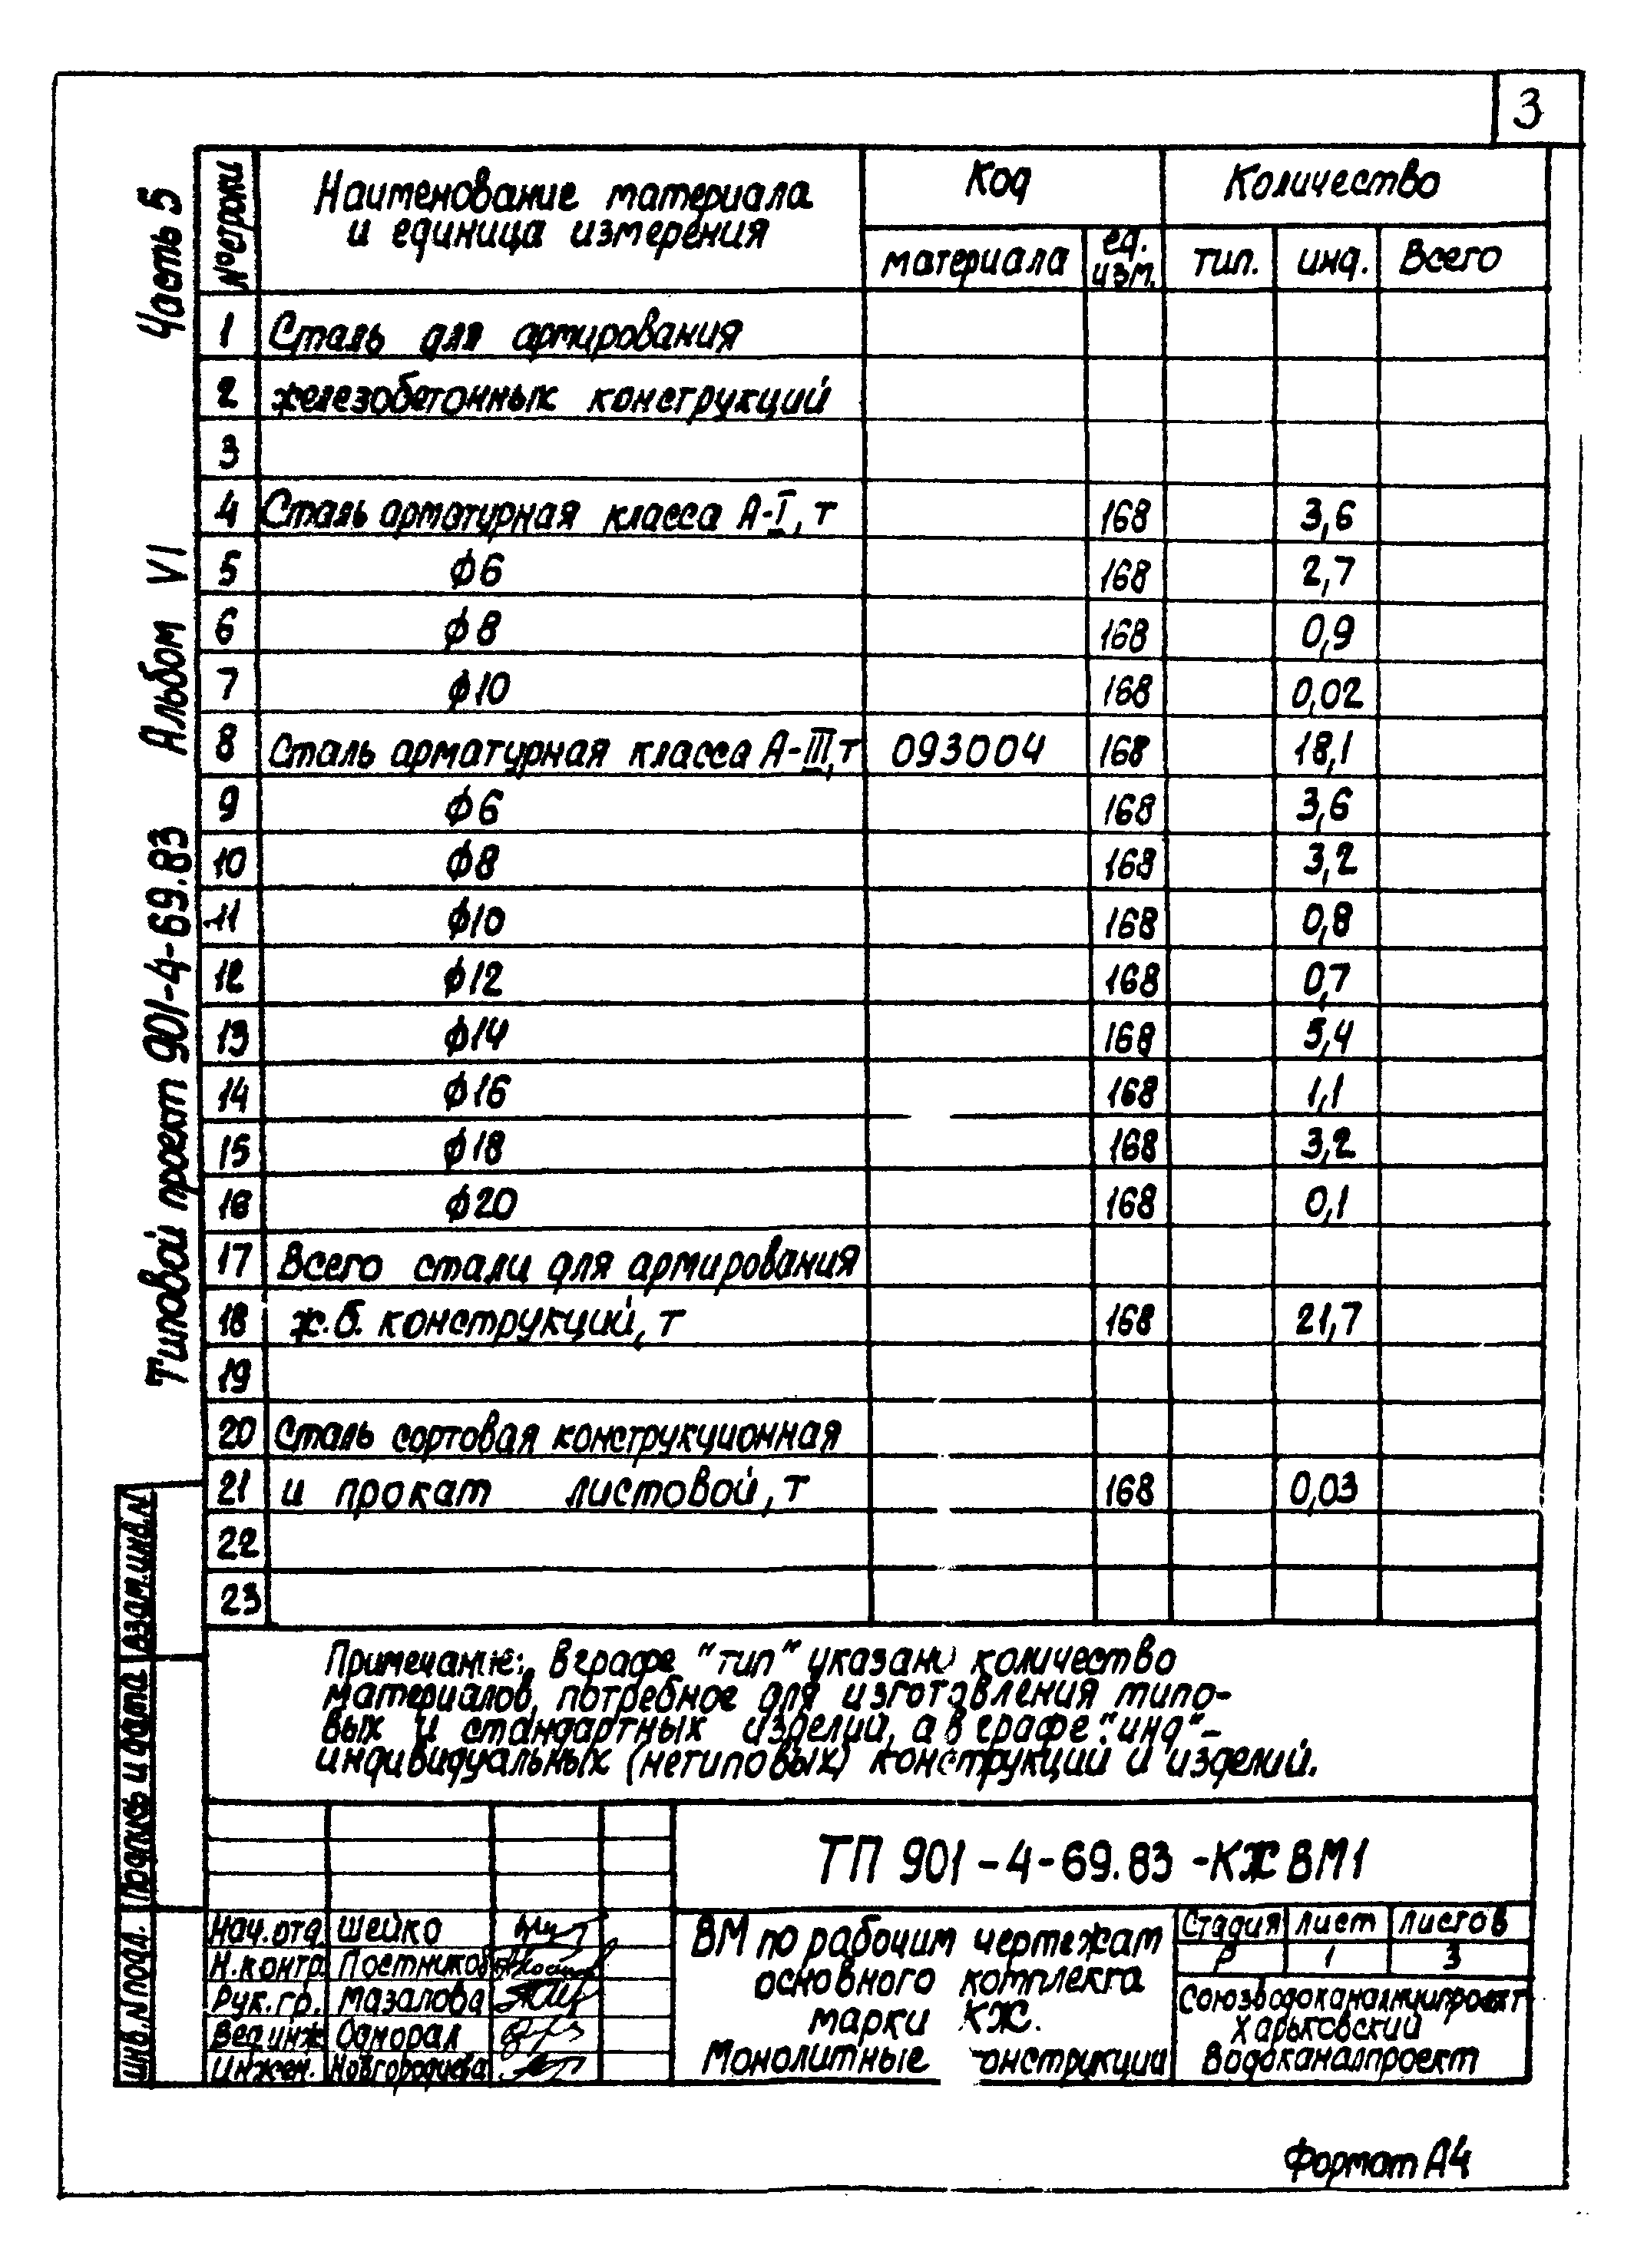 3
Часть 5
Альбом VI
Типовой проект 901-4-69.83
№ строки
Наименование материала
и единица измерения
Код
Количество
материала
ед.
изм.
тип.
инд.
Всего
1 Сталь для армирования
2 железобетонных конструкций
3
4 Сталь арматурная класса А-I, т 168 3,6
5 ϕ6 168 2,7
6 ϕ8 168 0,9
7 ϕ10 168 0,02
8 Сталь арматурная класса А-III, т 093004 168 18,1
9 ϕ6 168 3,6
10 ϕ8 168 3,2
11 ϕ10 168 0,8
12 ϕ12 168 0,7
13 ϕ14 168 5,4
14 ϕ16 168 1,1
15 ϕ18 168 3,2
16 ϕ20 168 0,1
17 Всего стали для армирования
18 ж.б. конструкций, т 168 21,7
19
20 Сталь сортовая конструкционная
21 и прокат листовой, т 168 0,03
22
23
Примечание: В графе "тип" указано количество
материалов, потребное для изготовления типо-
вых и стандартных изделий, а в графе "инд"-
индивидуальных (нетиповых) конструкций и изделий.
ТП 901-4-69.83 -КЖ ВМ1
Нач.отд. Шейко
Н.контр. Постников
Рук.гр. Мазалова
Вед.инж. Одморал
Инжен. Новгородцева
ВМ по рабочим чертежам
основного комплекта
марки КЖ.
Монолитные конструкции
Стадия Лист Листов
Р 1 3
Союзводоканалниипроект
Харьковский
Водоканалпроект
Инв.N подл.
Подпись и дата
Взам.инв.N
Формат А4